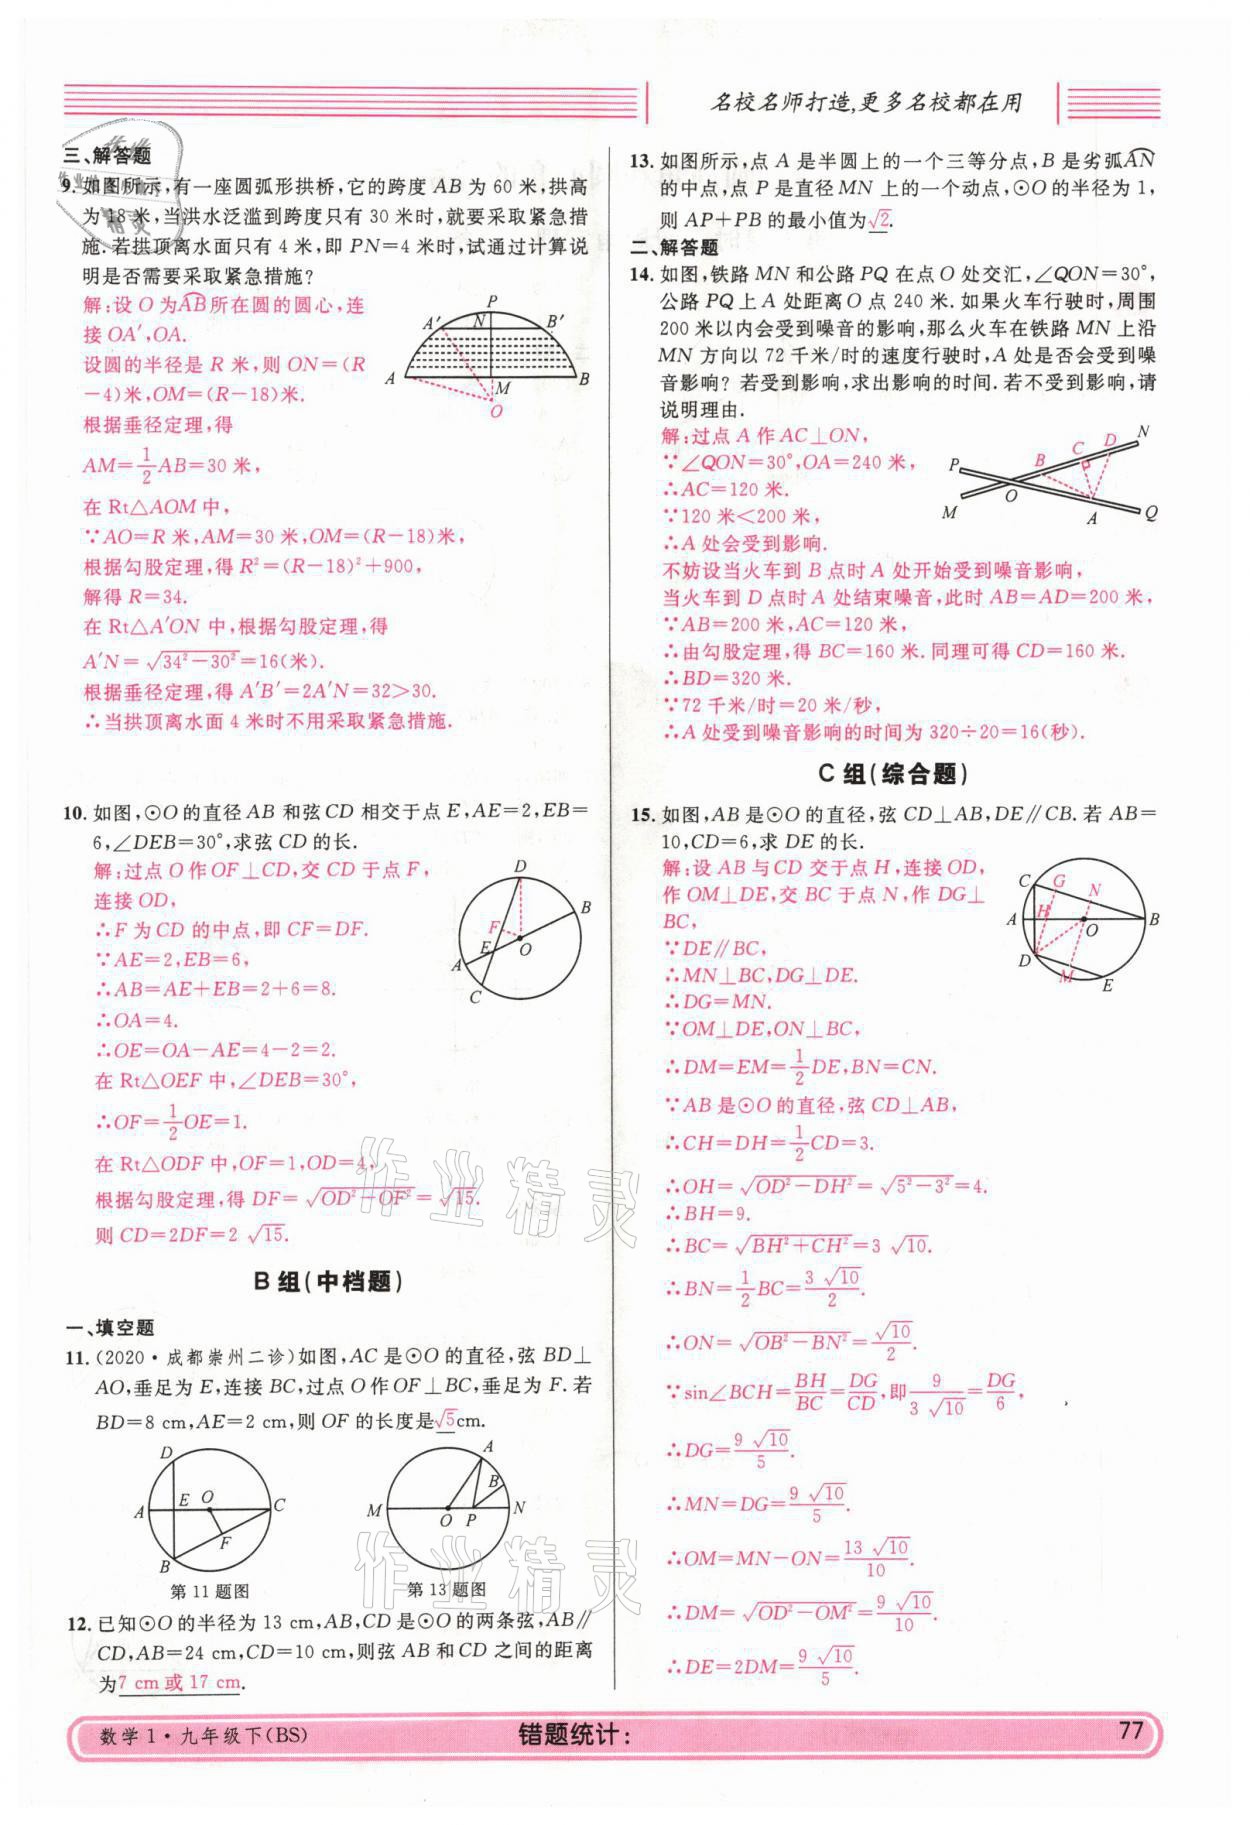 名校名师打造,更多名校都在用
三、解答题
9. 如图所示,有一座圆弧形拱桥,它的跨度 AB 为 60 米,拱高
为 18 米,当洪水泛滥到跨度只有 30 米时,就要采取紧急措
施.若拱顶离水面只有 4 米,即 PN=4 米时,试通过计算说
明是否需要采取紧急措施?
解:设 O 为AB⌒所在圆的圆心,连
接 OA′,OA.
设圆的半径是 R 米,则 ON=(R
-4)米,OM=(R-18)米.
根据垂径定理,得
AM=1/2AB=30 米,
在 Rt△AOM 中,
∵AO=R 米,AM=30 米,OM=(R-18)米,
根据勾股定理,得 R²=(R-18)²+900,
解得 R=34.
在 Rt△A′ON 中,根据勾股定理,得
A′N=√(34²-30²)=16(米).
根据垂径定理,得 A′B′=2A′N=32>30.
∴当拱顶离水面 4 米时不用采取紧急措施.
P
A′ N B′
A M B
O
10. 如图,⊙O 的直径 AB 和弦 CD 相交于点 E,AE=2,EB=
6,∠DEB=30°,求弦 CD 的长.
解:过点 O 作 OF⊥CD,交 CD 于点 F,
连接 OD,
∴F 为 CD 的中点,即 CF=DF.
∵AE=2,EB=6,
∴AB=AE+EB=2+6=8.
∴OA=4.
∴OE=OA-AE=4-2=2.
在 Rt△OEF 中,∠DEB=30°,
∴OF=1/2OE=1.
在 Rt△ODF 中,OF=1,OD=4,
根据勾股定理,得 DF=√(OD²-OF²)=√15.
则 CD=2DF=2√15.
D
B
F
E O
A
C
B 组(中档题)
一、填空题
11. (2020·成都崇州二诊)如图,AC 是⊙O 的直径,弦 BD⊥
AO,垂足为 E,连接 BC,过点 O 作 OF⊥BC,垂足为 F.若
BD=8 cm,AE=2 cm,则 OF 的长度是√5cm.
D
A E O C
F
B
第 11 题图
A
B
M O P N
第 13 题图
12. 已知⊙O 的半径为 13 cm,AB,CD 是⊙O 的两条弦,AB∥
CD,AB=24 cm,CD=10 cm,则弦 AB 和 CD 之间的距离
为7 cm 或 17 cm.
13. 如图所示,点 A 是半圆上的一个三等分点,B 是劣弧AN⌒
的中点,点 P 是直径 MN 上的一个动点,⊙O 的半径为 1,
则 AP+PB 的最小值为√2.
二、解答题
14. 如图,铁路 MN 和公路 PQ 在点 O 处交汇,∠QON=30°,
公路 PQ 上 A 处距离 O 点 240 米.如果火车行驶时,周围
200 米以内会受到噪音的影响,那么火车在铁路 MN 上沿
MN 方向以 72 千米/时的速度行驶时,A 处是否会受到噪
音影响? 若受到影响,求出影响的时间.若不受到影响,请
说明理由.
解:过点 A 作 AC⊥ON,
∵∠QON=30°,OA=240 米,
∴AC=120 米.
∵120 米<200 米,
∴A 处会受到影响.
不妨设当火车到 B 点时 A 处开始受到噪音影响,
当火车到 D 点时 A 处结束噪音,此时 AB=AD=200 米,
∵AB=200 米,AC=120 米,
∴由勾股定理,得 BC=160 米.同理可得 CD=160 米.
∴BD=320 米.
∵72 千米/时=20 米/秒,
∴A 处受到噪音影响的时间为 320÷20=16(秒).
P B C D N
M O A Q
C 组(综合题)
15. 如图,AB 是⊙O 的直径,弦 CD⊥AB,DE∥CB.若 AB=
10,CD=6,求 DE 的长.
解:设 AB 与 CD 交于点 H,连接 OD,
作 OM⊥DE,交 BC 于点 N,作 DG⊥
BC,
∵DE∥BC,
∴MN⊥BC,DG⊥DE.
∴DG=MN.
∵OM⊥DE,ON⊥BC,
∴DM=EM=1/2DE,BN=CN.
∵AB 是⊙O 的直径,弦 CD⊥AB,
∴CH=DH=1/2CD=3.
∴OH=√(OD²-DH²)=√(5²-3²)=4.
∴BH=9.
∴BC=√(BH²+CH²)=3√10.
∴BN=1/2BC=3√10/2.
∴ON=√(OB²-BN²)=√10/2.
∵sin∠BCH=BH/BC=DG/CD,即9/(3√10)=DG/6,
∴DG=9√10/5.
∴MN=DG=9√10/5.
∴OM=MN-ON=13√10/10.
∴DM=√(OD²-OM²)=9√10/10.
∴DE=2DM=9√10/5.
C G N
A H O B
D M E
数学 1·九年级下(BS)
错题统计:
77
作业精灵
作业精灵